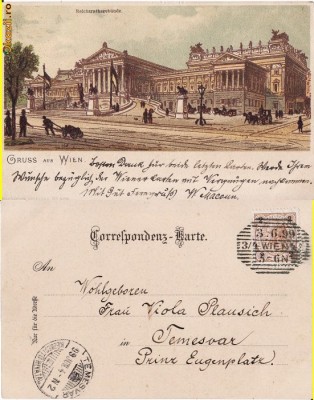 Okazii.ro
Reichsrathsgebäude.
GRUSS AUS WIEN.
Besten Dank für beide letzten Karten. Werde Ihrem
Wunsche bezüglich der Wiener Karten mit Vergnügen nachkommen.
Mit Gut Ferngruß!
Correspondenz-Karte.
3.6.99
3/4 WIEN
5-6N
An
Wohlgeboren
Frau Viola Plausich
in
Temesvar
Prinz Eugenplatz.
Nur für die Adresse
TEMESVÁR
99 JUN 4 N2